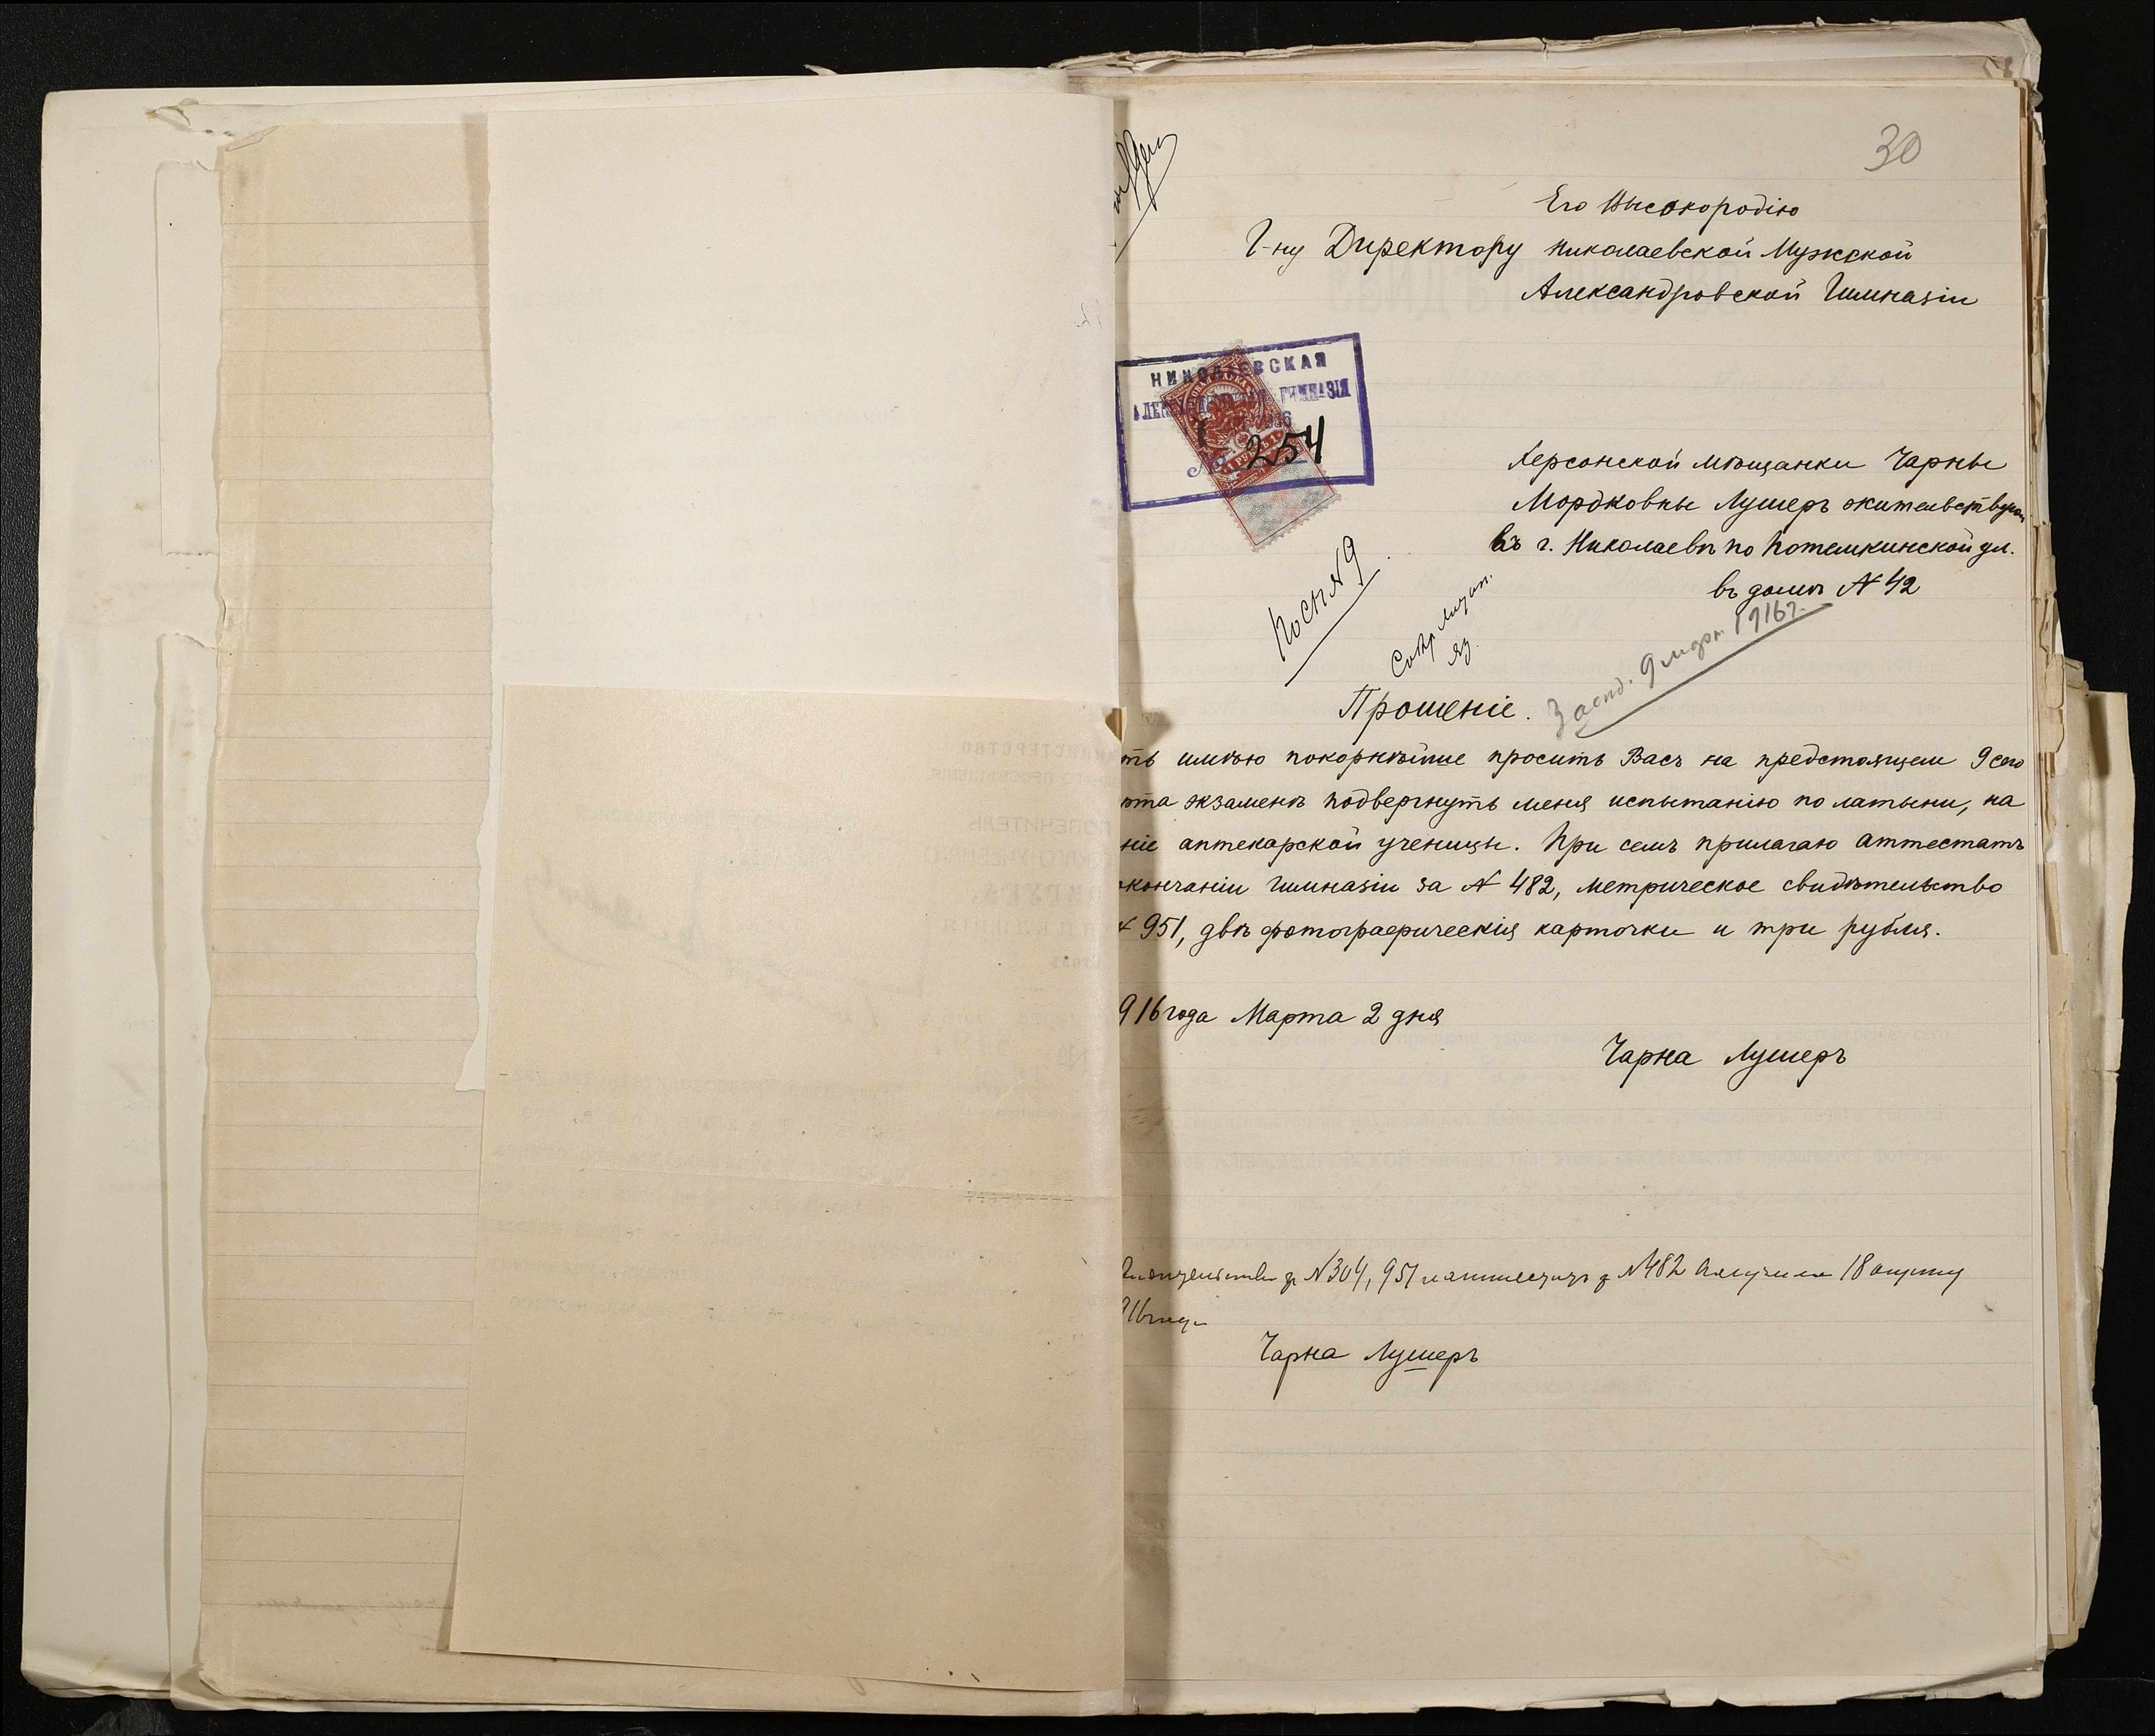 30
Его Высокородію
Г-ну Директору Николаевской Мужской
Александровской Гимназіи
НИКОЛАЕВСКАЯ
АЛЕКСАНДРОВСКАЯ ГИМНАЗІЯ
№ 254
Херсонской мѣщанки Чарны
Мордковны Лушеръ жительствующ
въ г. Николаевѣ по Потемкинской ул.
въ домѣ № 42
1916 г.
Прошеніе.
ть имѣю покорнѣйше просить Васъ на предстоящем 9 сего
рта экзаменѣ подвергнуть меня испытанію по латыни, на
ніе аптекарской ученицы. При семъ прилагаю аттестатъ
окончаніи гимназіи за № 482, метрическое свидѣтельство
№ 951, двѣ фотографическія карточки и три рубля.
916 года Марта 2 дня
Чарна Лушеръ
№ 304, 951 и аттестатъ з № 482 получила 18
916 года
Чарна Лушеръ